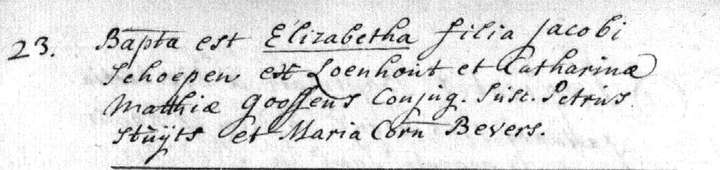 23. Bapta est Elizabetha filia Jacobi
Schoepen ex Loenhout et Catharinæ
Mathiæ Goossens Conjug. Susc. Petrus
Stuÿts et Maria Corn Bevers.